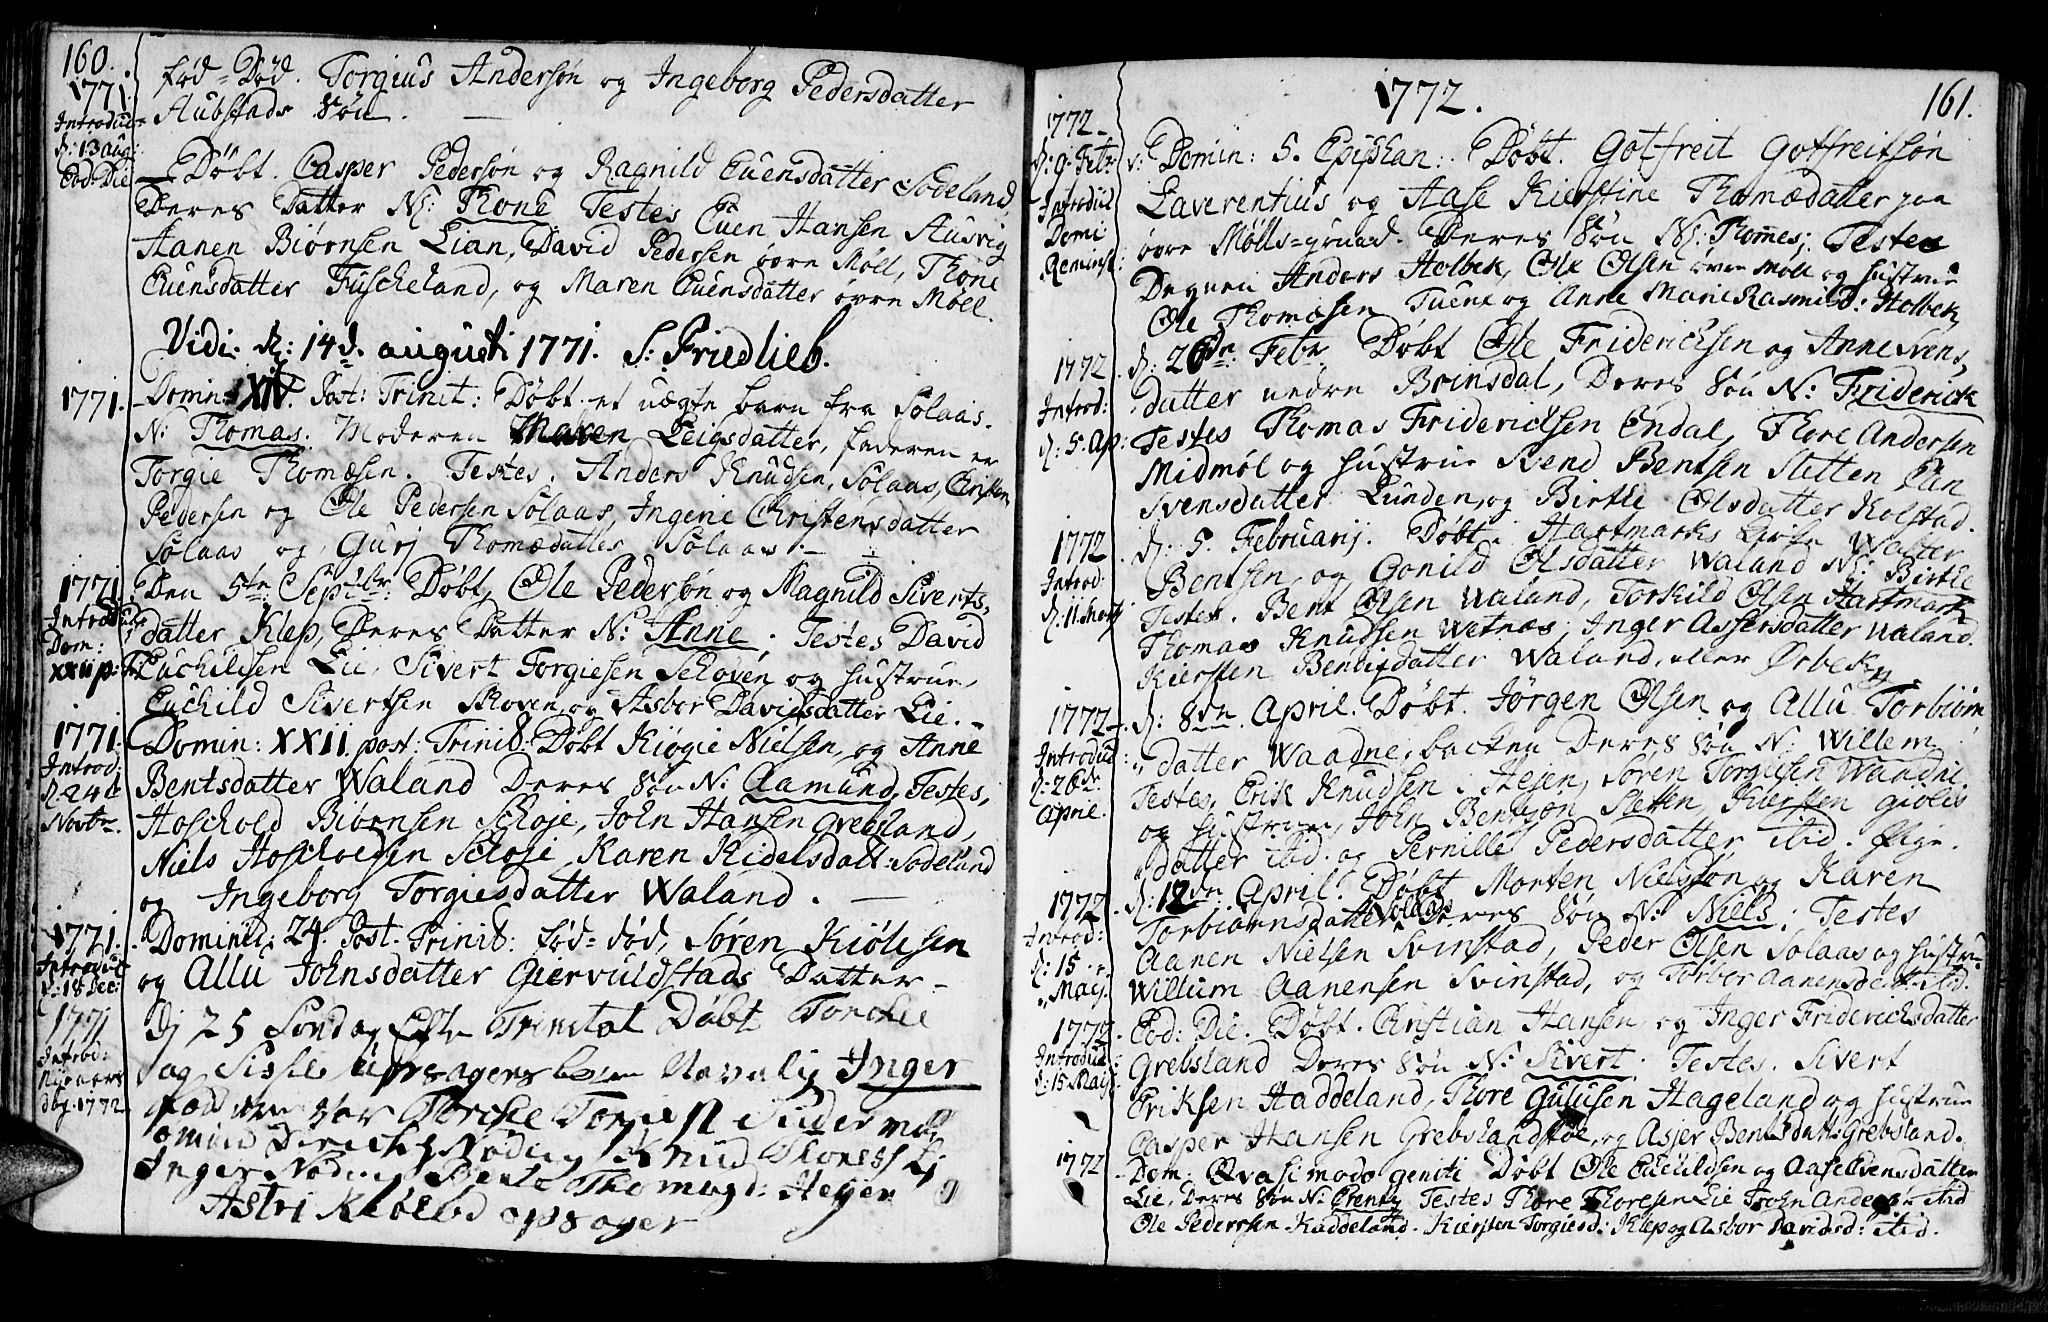 160.
1771.
Introdue=
d: 13 aug:
Eod: Die
fød=Død. Torgius Andersøn og Ingeborg Pedersdatter
Aubstads Søn.
Døbt. Casper Pedersøn og Ragnild Euensdatter Sodeland,
Deres Datter N: Thone Testes Euen Hansen Ausvig
Aanen Biørnsen Lian, David Pedersen øvre Møll, Thone
Euensdatter Fuscheland, og Maren Euensdatter øvre Møll.
Vidi. d: 14d. augusti 1771. S: Friedlieb.
1771.
Domin: XIV. Post: Trinit: Døbt et uægte barn fra Solaas.
N: Thomas. Moderen Maren Leigsdatter, faderen er
Torgie Thomæsen. Testes. Anders Knudsen, Solaas, Christen
Pedersen og Ole Pedersen Solaas, Ingerie Christensdatter
Solaas og Gurj Thomædatter Solaas.
1771.
Introduc:
Dom:
XXII p: Tr:
Den 5te Septbr: Døbt, Ole Pedersøn og Magnild Siverts,
datter Klep, Deres Datter N: Anne; Testes David
Euchildsen Lie, Sivert Torgiesen Schoven og hustrue,
Euchild Sivertsen Skoven, og Asbor Davidsdatter Lie.
1771.
Introd:
d. 24d
Novbr.
Domin: XXII post: Trinit: Døbt Kiøgie Nielsen, og Anne
Bentsdatter Waland Deres Søn N: Aamund, Testes,
Hoschold Biørnsen Schoje, John Hansen Grebsland,
Niels Hoscholdsen Schoje, Karen Kidelsdatt: Sodeland
og Ingeborg Torgiesdatter Waland.
1771.
Introduct
d: 18 Dec:
Dominic: 24. Post. Trinit: fød=død, Søren Kiølesen
og Allu Johnsdatter Giervuldstads Datter
1771
Introd:
Nyeaars
dag. 1772
Dj 25 Søndag Efter Trinitat Døbt Torckel
og Sissele Upsagers barn Navnlig Inger
Fad
Torckel Nøding Knud
Inger Nøding Thomasd: Hejer
Astri Kløeled opsager
1772.
161.
1772
d: 9. Febr
Introdul
Domi:
Reminsc:
v: Domin: 5. Epiphan: Døbt. Gotfreit Gotfreitsøn
Laverentius og Aase Kierstine Thomædatter paa
øvre Mølls=grund. Deres Søn N: Thomes; Testes
Degnen Anders Holbek, Ole Olsen øvre Møll og hustrue
Ole Thomæsen Tuene og Anne Marie Rasmusd: Holbek,
1772
Introd:
d: 5. Ap:
d: 26de Febr Døbt Ole Friderichsen og Anne Svens,
datter nedre Brinsdal, Deres Søn N: Friderick
Testes Thomas Friderichsen Endal, Thore Andersen
Midmøl og hustrue Svend Bentsen Sletten Ean
Svensdatter Lunden, og Birte Olsdatter Kolstad.
1772
Introd:
d: 11. Martj
d: 5. Februarij. Døbt i Hartmarks Kirke Wester
Bentsen, og Gonild Olsdatter Waland N: Birthe
Testes. Bent Olsen Waland, Torkild Olsen Hartmark
Thomas Knudsen Wetnæs, Inger Assersdatter Waland.
Kiersten Bentisdatter Waland, eller Ørbek
1772
Introdud:
d: 26de
Aprie.
d: 8de April. Døbt. Jørgen Olsen og Allu Torbiørn
datter Waadne, backen Deres Søn N: Willem
Testes, Erik Knudsen i Hejen, Søren Torgiesen Waadne
og hustrue, John Bentsøn Sletten, Kiersten Giølis
datter ibid. og Pernille Pedersdatter ibid. Pige.
1772
Introd:
d: 15
Maij.
d: 12de April. Døbt Morten Nielsøn og Karen
Torbiørnsdatter Solaas Deres Søn N: Niels. Testes
Aanen Nielsen Svinstad, Peder Olsen Solaas og hustru
Willum Aanensen Svinstad, og Torbor Aanensdatt: ibid.
1772
Introdud:
d: 15 Maij
Eod: Die. Døbt. Christian Hansen, og Inger Friderichsdatter
Grebsland Deres Søn N: Sivert. Testes. Sivert
Eriksen Haddeland, Thore Gulusen Hageland og hustrue
Casper Hansen Grebsland, og Asjer Bentsdatt: Grebsland.
1772
Dom: Qvasimodo geniti Døbt Ole Euchildsen og Aase Evensdatter
Lie, Deres Søn N: Testes Thore Thoresen Lie John Andersen ibid
Ole Pedersen Kaddeland. Kiersten Torgiesd: Klep og Asbor Davidsd: ibid.